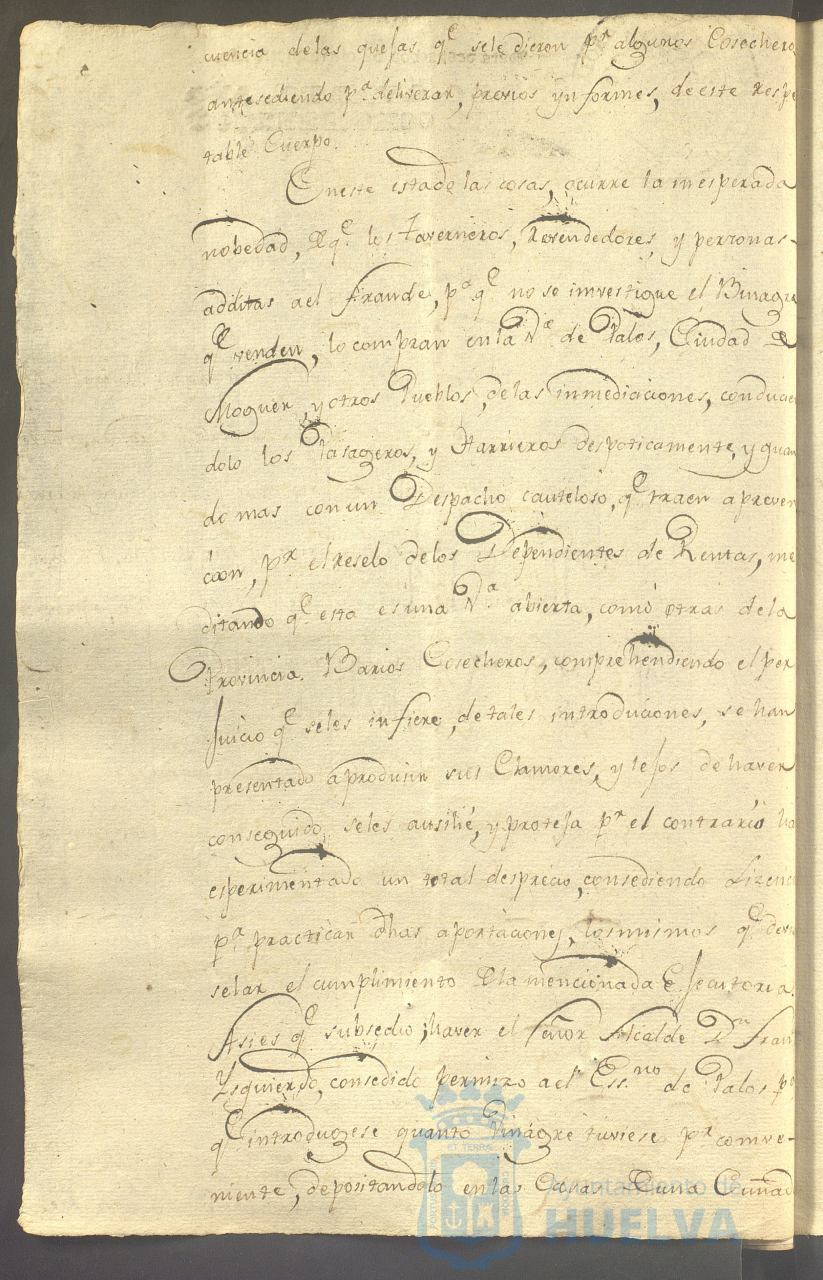 cuencia delas quejas, q.e sele dieron p.r algunos Cosechero
antesediendo p.a deliverar, previos ynformes, de este Respe
table Cuerpo.
En este estado las cosas, ocurre la inesperada
nobedad, de q.e los Taverneros, Revendedores, y personas
additas ael fraude, p.a q.e no se imvestigue el Binagre
q.e venden, lo compran en la V.a de Palos, Ciudad de
Moguer, y otros Pueblos, de las inmediciones, conducien
dolo los Pasageros, y Harrieros despoticamente, y quan
do mas con un Despacho cauteloso, q.e traen a preven
cion, p.r el reselo delos Dependientes de Rentas, me
ditando q.e esta es una V.a abierta, como otras de la
Provincia. Barios Cosecheros, comprehendiendo el per
Juicio q.e seles infiere, de tales introduciones, se han
presentado a produsir sus Clamores, y lejos de haver
conseguido, seles ausilie, y proteja p.r el contrario ha
esperimentado un total desprecio, consediendo Lizenci
p.a practicar dhas aportaciones, los mismos q.e deve
selar el cumplimiento de la mencionada Ejecutoria.
Asi es q.e subsedio, haver el Señor Alcalde D.n Fran
Ysquierdo, consedido permizo ael Ess.no de Palos p.a
q.e introdugese quanto Vinagre tuviese p.r comve-
niente, depositandolo en las Casas de una Cuñad
EL TERRÆ
Ayuntamiento de
HUELVA